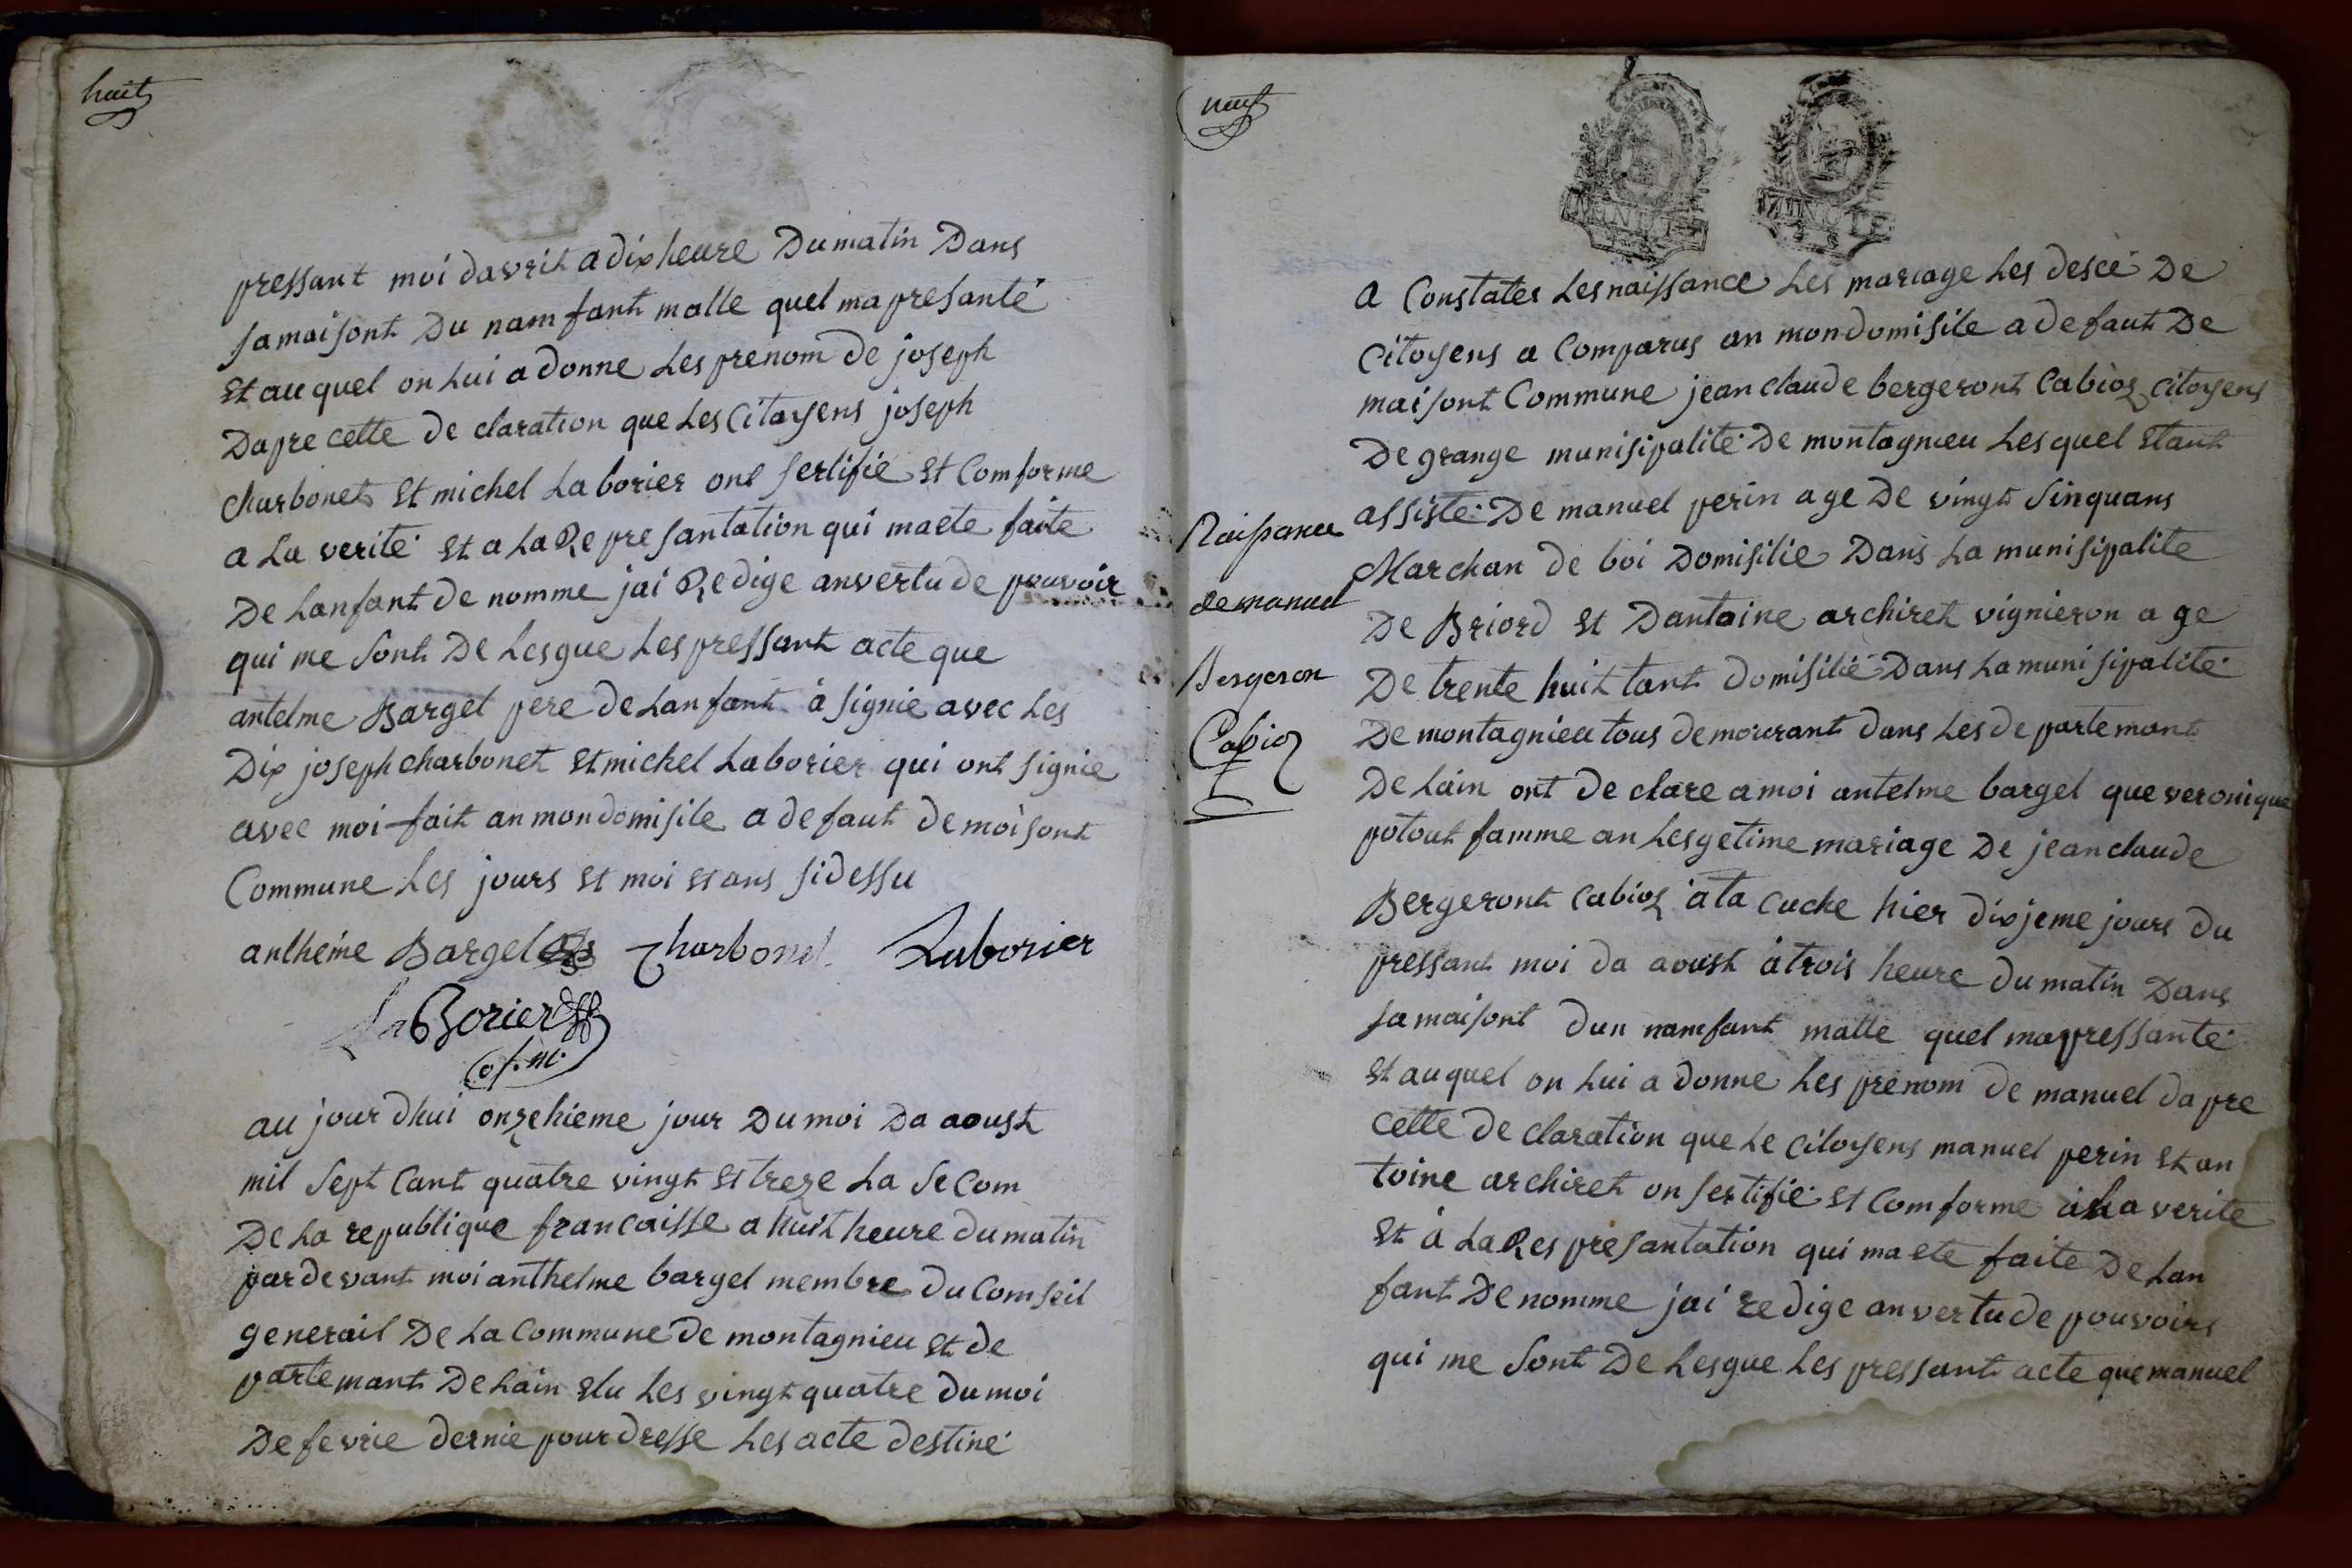 huit
pressant moi davrit a dix heure Du matin Dans
sa maisont Du namfant malle quel ma presanté
Et au quel on Lui a donne Les prenom de joseph
Dapre cette de claration que Les Citoyens joseph
charbonet Et michel Laborier ont sertifie Et Comforme
a La verité Et a La Represantation qui maete faite
De Lanfant de nomme jai Redige anvertu de pouvoir
qui me sont De Lesgue Les pressant acte que
antelme Bargel pere de Lanfant à signie avec Les
Dix joseph charbonet Et michel Laborier qui ont signie
avec moi fait an mon domisile a defaut de moisont
Commune Les jours Et moi Et ans sidessu
anthéme Bargel charbonel Laborier
LaBorier
of. m.
au jourdhui onzehieme jour Du moi Da aoust
mil sept Cant quatre vingt Et treze La secom
De La republique francaisse a huit heure du matin
par devant moi anthelme bargel membre du Comseil
generail De La Commune de montagnieu Et de
partemant De Lain Elu Les vingt quatre du moi
De fevrie dernie pour dresse Les acte destiné
neuf
a Constater Les naissance Les mariage Les descé De
Citoyens a Comparus an mon domisile a defaut De
maisont Commune jean claude bergeront Cabioz Citoyens
De grange munisipalité De montagnieu Lesquel Etant
assisté De manuel perin age De vingt sinquans
Marchan de boi Domisilie Dans La munisipalite
De Briord Et Dantoine archiret vignieron age
De trente huit tant domisilié Dans La munisipalité
De montagnieu tous demourant dans Les de partemant
De Lain ont de clare a moi antelme bargel que veronique
potout famme an Lesgetime mariage De jean claude
Bergeront Cabioz ata cuche hier dixjeme jours du
pressant moi da aoust à trois heure du matin Dans
sa maisont dun namfant malle quel mapressanté
Et auquel on Lui a donne Les prenom de manuel dapre
Cette de claration que Le Citoyens manuel perin Et an
toine archiret on sertifié Et Comforme à La verite
Et à La Respresantation qui ma ete faite De Lan
fant De nomme jai redige anvertu de pouvoirs
qui me sont De Lesgue Les pressant acte que manuel
Naissance
de manuel
Bergeron
Cabioz